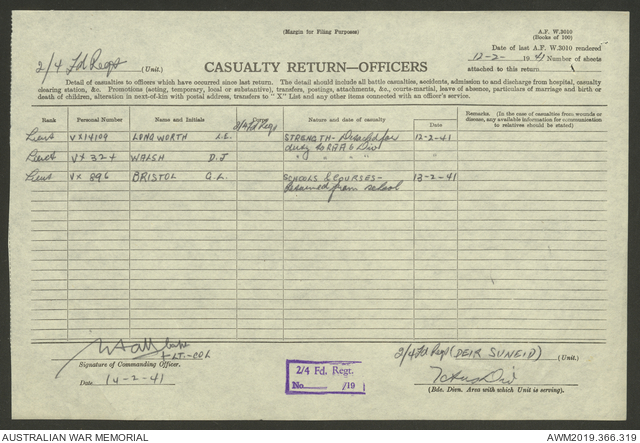 (Margin for Filing Purposes)
A.F. W.3010
(Books of 100)
2/4 Fd Regt (Unit.)
Date of last A.F. W.3010 rendered
12-2- 1941 Number of sheets
CASUALTY RETURN—OFFICERS
attached to this return
Detail of casualties to officers which have occurred since last return. The detail should include all battle casualties, accidents, admission to and discharge from hospital, casualty
clearing station, &c. Promotions (acting, temporary, local or substantive), transfers, postings, attachments, &c., courts-martial, leave of absence, particulars of marriage and birth or
death of children, alteration in next-of-kin with postal address, transfers to "X" List and any other items connected with an officer's service.
Rank Personal Number Name and Initials Corps Nature and date of casualty Remarks. (In the case of casualties from wounds or
disease, any available information for communication
to relatives should be stated)
2/4 Fd Regt Date
Lieut VX14109 LONGWORTH L.L. STRENGTH - Detached for 12-2-41
duty to RAA 6 Div
Lieut VX 324 WALSH D.J " " " "
Lieut VX 896 BRISTOL G.L. SCHOOLS & COURSES - 13-2-41
Returned from school
LT-COL
Signature of Commanding Officer.
Date 14-2-41
2/4 Fd. Regt.
No. /19
2/4 Fd Regt (DEIR SUNEID) (Unit.)
(Bde. Divn. Area with which Unit is serving).
AUSTRALIAN WAR MEMORIAL
AWM2019.366.319